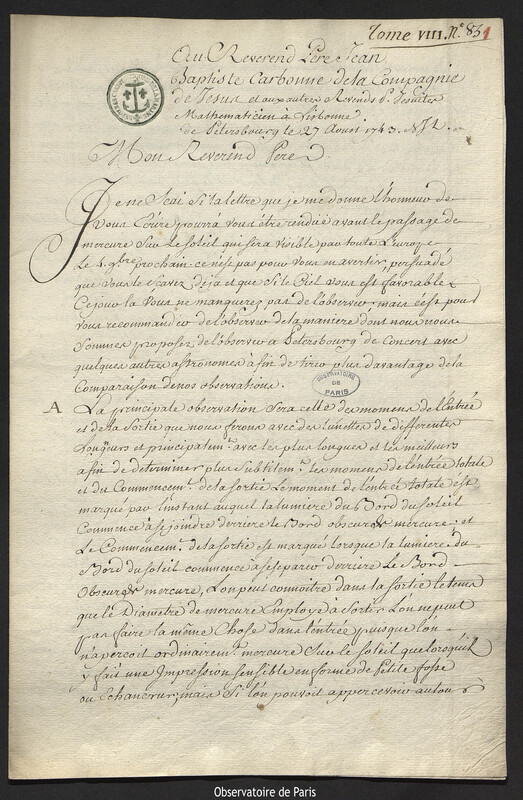 Tome VIII. N.° 831
Au Reverend Pere Jean
Baptiste Carbonne de la Compagnie
de Jesus et aux autres Revends P. Jesuites
Mathematicien à Lisbonne
de Petersbourg le 27 Aoust 1743. N St.
Mon Reverend Pere
Je ne scai si la lettre que je me donne l'honneur de
vous Ecrire pourra vous être rendüe avant le passage de
mercure sur le soleil qui sera visible par toute l'Europe
Le 5. 9bre prochain ce n'est pas pour vous en avertir, persuadé
que vous le scavez deja et que si le Ciel vous est favorable
Ce jour la vous ne manquerez pas de l'observer. mais c'est pour
vous recommander de l'observer de la maniere dont nous nous
sommes proposez de l'observer a Petersbourg de Concert avec
quelques autres astronomes afin de tirer plus davantage de la
Comparaison de nos observations.
OBSERVATOIRE DE PARIS
A La principale observation sera celle des momens de l'entrée
et de la Sortie que nous ferons avec des lunettes de differentes
Longueurs et principalem.t avec les plus longues et les meilleurs
afin de determiner plus subtilem.t les momens de l'entrée totale
et du Commencem.t de la sortie. Le moment de l'entrée totale est
marqué par l'instant auquel la lumiere du Bord du soleil
Commence a se joindre derriere le Bord obscur de mercure. et
Le Commencem.t de la sortie est marqué lorsque la lumiere du
Bord du soleil commence a se separer derriere Le Bord
Obscur de mercure, L'on peut connoitre dans la sortie le tems
que le Diametre de mercure Employe à sortir L'on ne peut
pas faire la même Chose dans l'entrée puisque l'on
n'apercoit ordinairem.t mercure sur le soleil que lorsqu'il
y fait une Impression sensible en forme de Petite fosse
ou Echancrure; mais si l'on pouvoit appercevoir autour
Observatoire de Paris